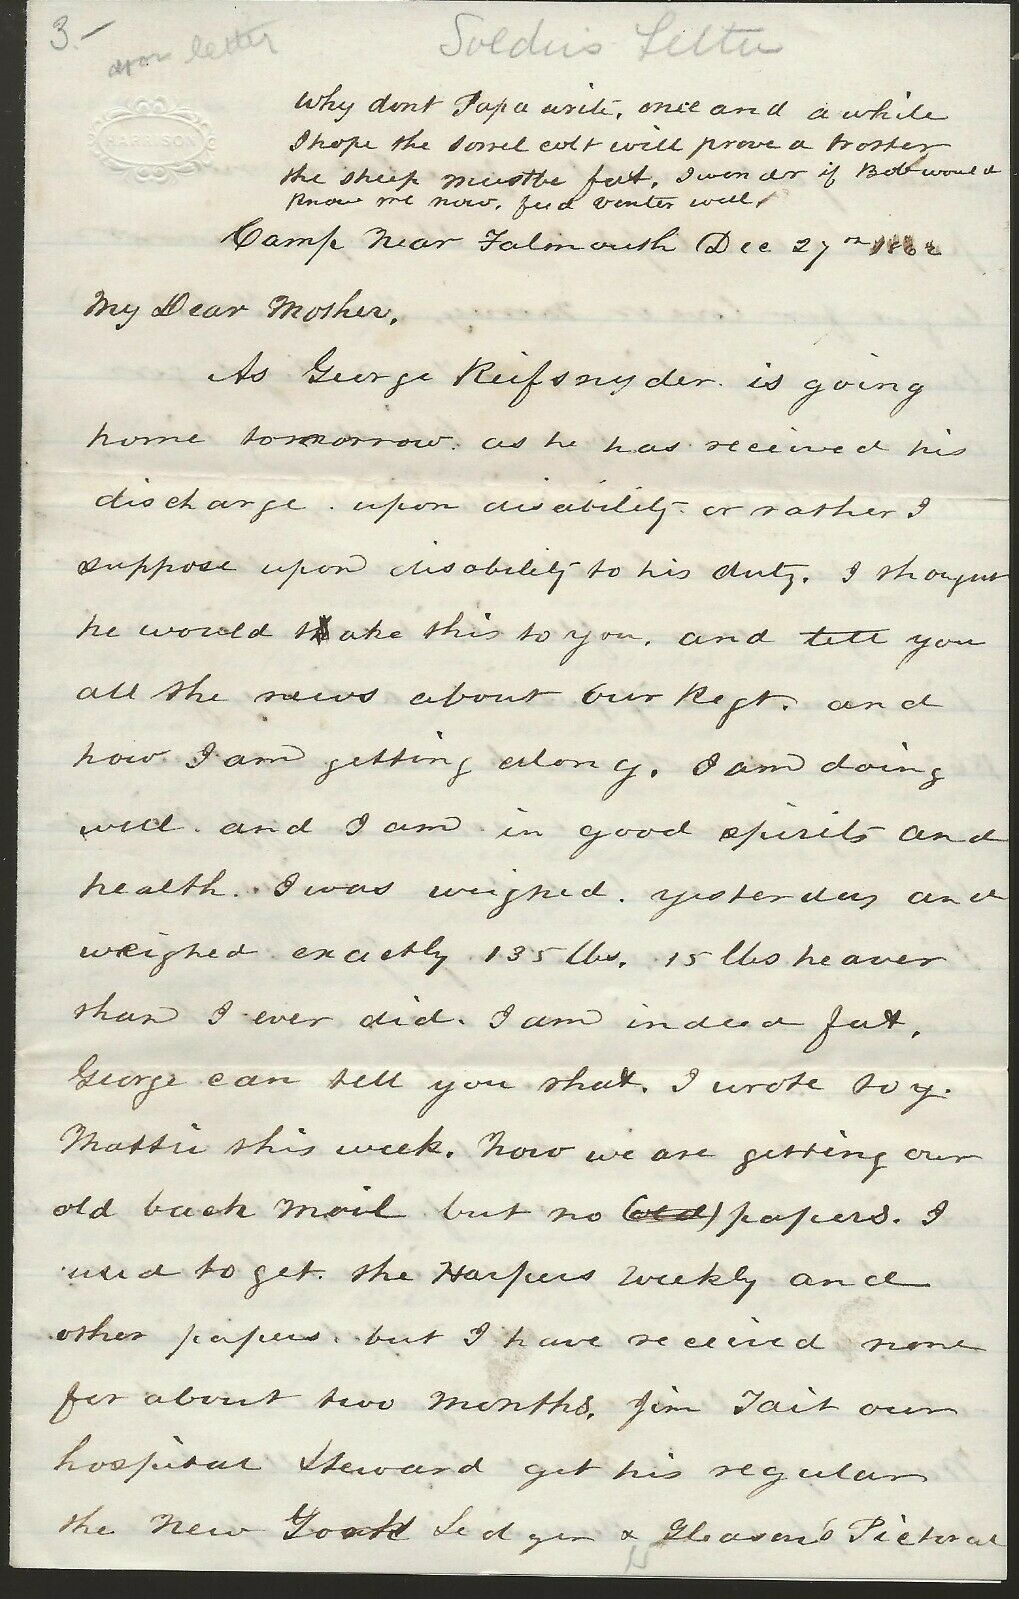 3.-
letter
Soldiers Letter
HARRISON
Why dont Papa write, once and a while
I hope the sorrel colt will prove a troster
the sheep mustbe fat, I wonder if Bob would
know me now, feed winter well,
Camp Near Falmouth Dec 27th 1862
My Dear Mother,
As George Reifsnyder is going
home tomorrow. as he has received his
discharge. upon disability or rather I
suppose upon disability to his duty. I thought
he would take this to you, and tell you
all the news about Our Regt. and
how I am getting along. I am doing
well. and I am in good spirits and
health. I was weighed. yesterday and
weighed exactly 135 lbs. 15 lbs heaver
than I ever did. I am indeed fat.
George can tell you that. I wrote to y.
Mattie this week. Now we are getting our
old back Mail but no (old) papers. I
used to get. the Harpers Weekly and
other papers. but I have received none
for about two Months. Jim Tait our
hospital Steward get his regular
the New York Ledger & Gleason's Pictoral
15